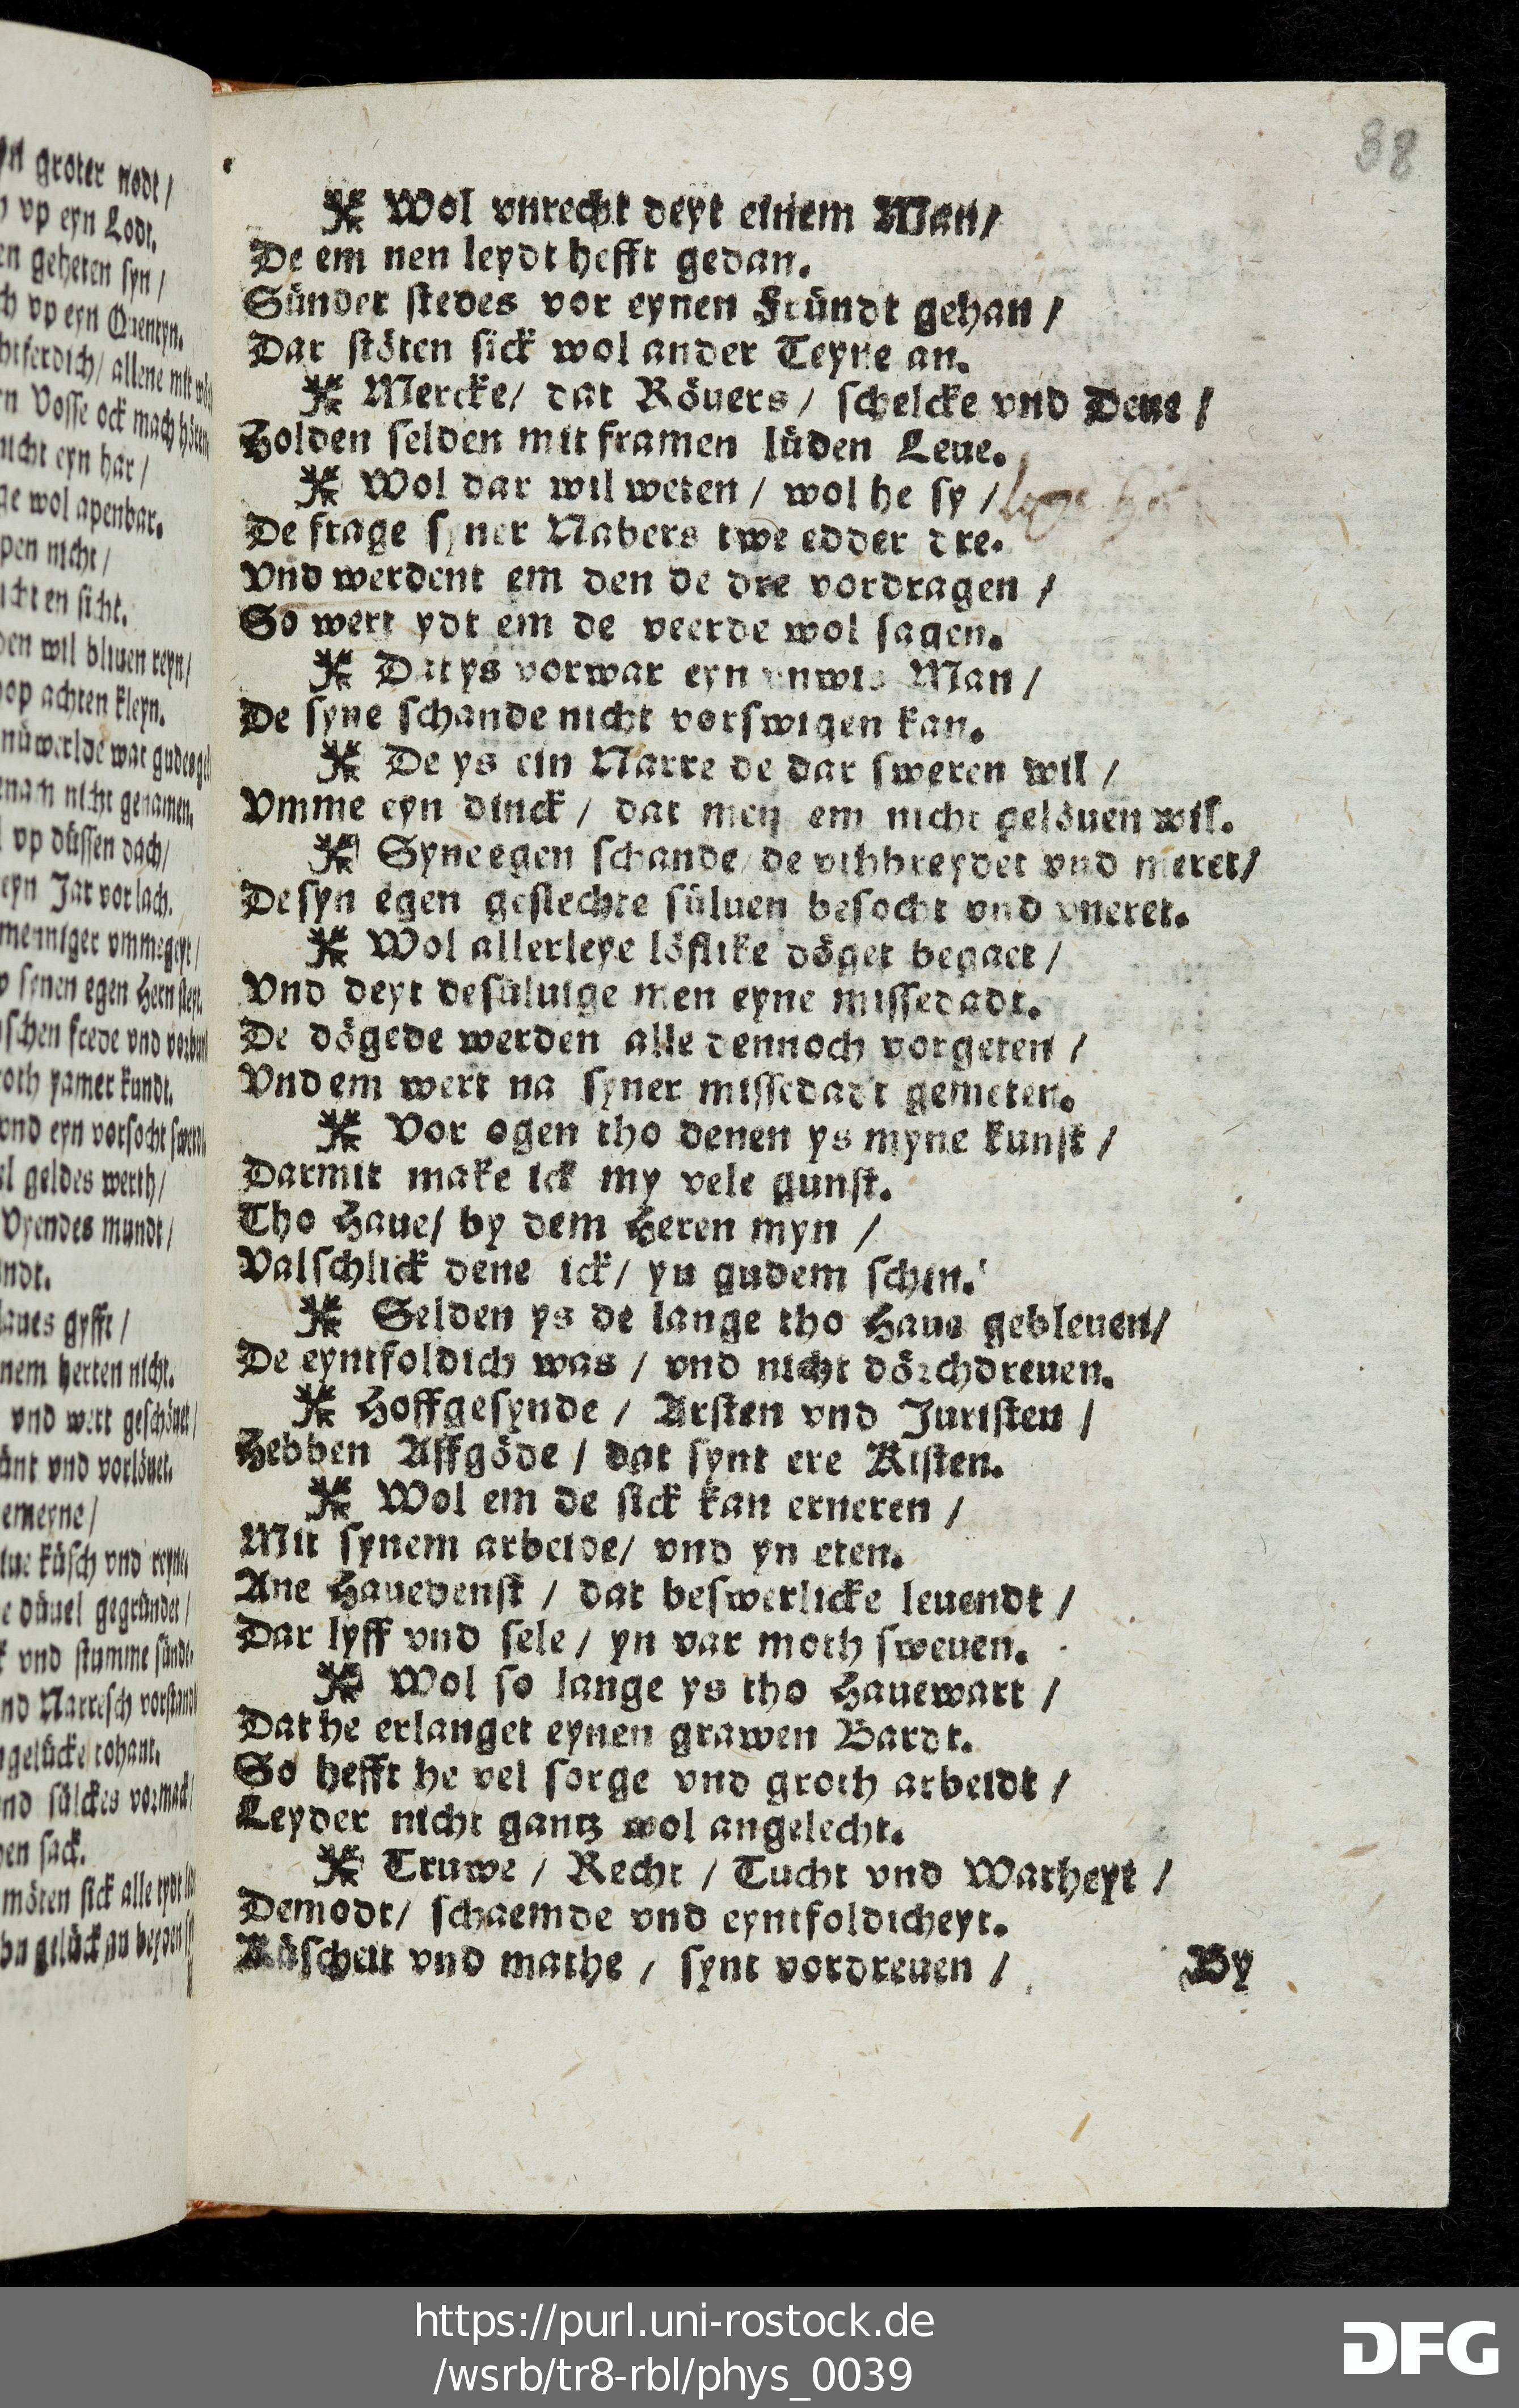 yn groter nodt /
vp eyn Lodt.
en geheten syn /
ch vp eyn Quentyn.
allene mit
Vosse ock mach
nicht eyn har /
wol apenbar.
nicht /
en sicht.
wil bliuen reyn /
achten kleyn.
wat gudes
nicht genamen.
vp düssen dach /
eyn Jar vor lach.
menniger vmmegeyt /
synen egen Hern
frede vnd
yamer kundt.
vnd eyn vorsocht
geldes werth /
Vyendes mundt /
gyfft /
herten nicht.
vnd wert
vnd vorlöuet.
küsch vnd
düuel gegründet /
vnd stumme
Narresch
tohant.
vnd sülckes
sack.
möten sick alle tydt
gelück
88
Wol vnrecht deyt einem Man /
De em nen leydt hefft gedan.
Sünder stedes vor eynen Fründt gehan /
Dar stöten sick wol ander Teyne an.
Mercke / dat Röuers / schelcke vnd Deue /
Holden selden mit framen lüden Leue.
Wol dar wil weten / wol he sy /
De frage syner Nabers twe edder dre.
Vnd werdent em den de dre vordragen /
So wert ydt em de veerde wol sagen.
Dat ys vorwar eyn vnwis Man /
De syne schande nicht vorswigen kan.
De ys ein Narre de dar sweren wil /
Vmme eyn dinck / dat men em nicht gelöuen wil.
Syne egen schande / de vthbreydet vnd meret /
De syn egen geslechte süluen besocht vnd vneret.
Wol allerleye löflike döget begaet /
Vnd deyt desüluige men eyne missedadt.
De dögede werden alle dennoch vorgeten /
Vnd em wert na syner missedadt gemeten.
Vor ogen tho denen ys myne kunst /
Darmit make ick my vele gunst.
Tho Haue / by dem Heren myn /
Valschlick dene ick / yn gudem schin.
Selden ys de lange tho Haue gebleuen /
De eyntfoldich was / vnd nicht dörchdreuen.
Hoffgesynde / Arsten vnd Juristen /
Hebben Affgöde / dat synt ere Kisten.
Wol em de sick kan erneren /
Mit synem arbeide / vnd yn eten.
Ane Hauedenst / dat beswerlicke leuendt /
Dar lyff vnd sele / yn var moth sweuen.
Wol so lange ys tho Hauewart /
Dat he erlanget eynen grawen Bardt.
So hefft he vel sorge vnd groth arbeidt /
Leyder nicht gantz wol angelecht.
Truwe / Recht / Tucht vnd Warheyt /
Demodt / schaemde vnd eyntfoldicheyt.
Küscheit vnd mathe / synt vordreuen /
By
https://purl.uni-rostock.de
/wsrb/tr8-rbl/phys_0039
DFG